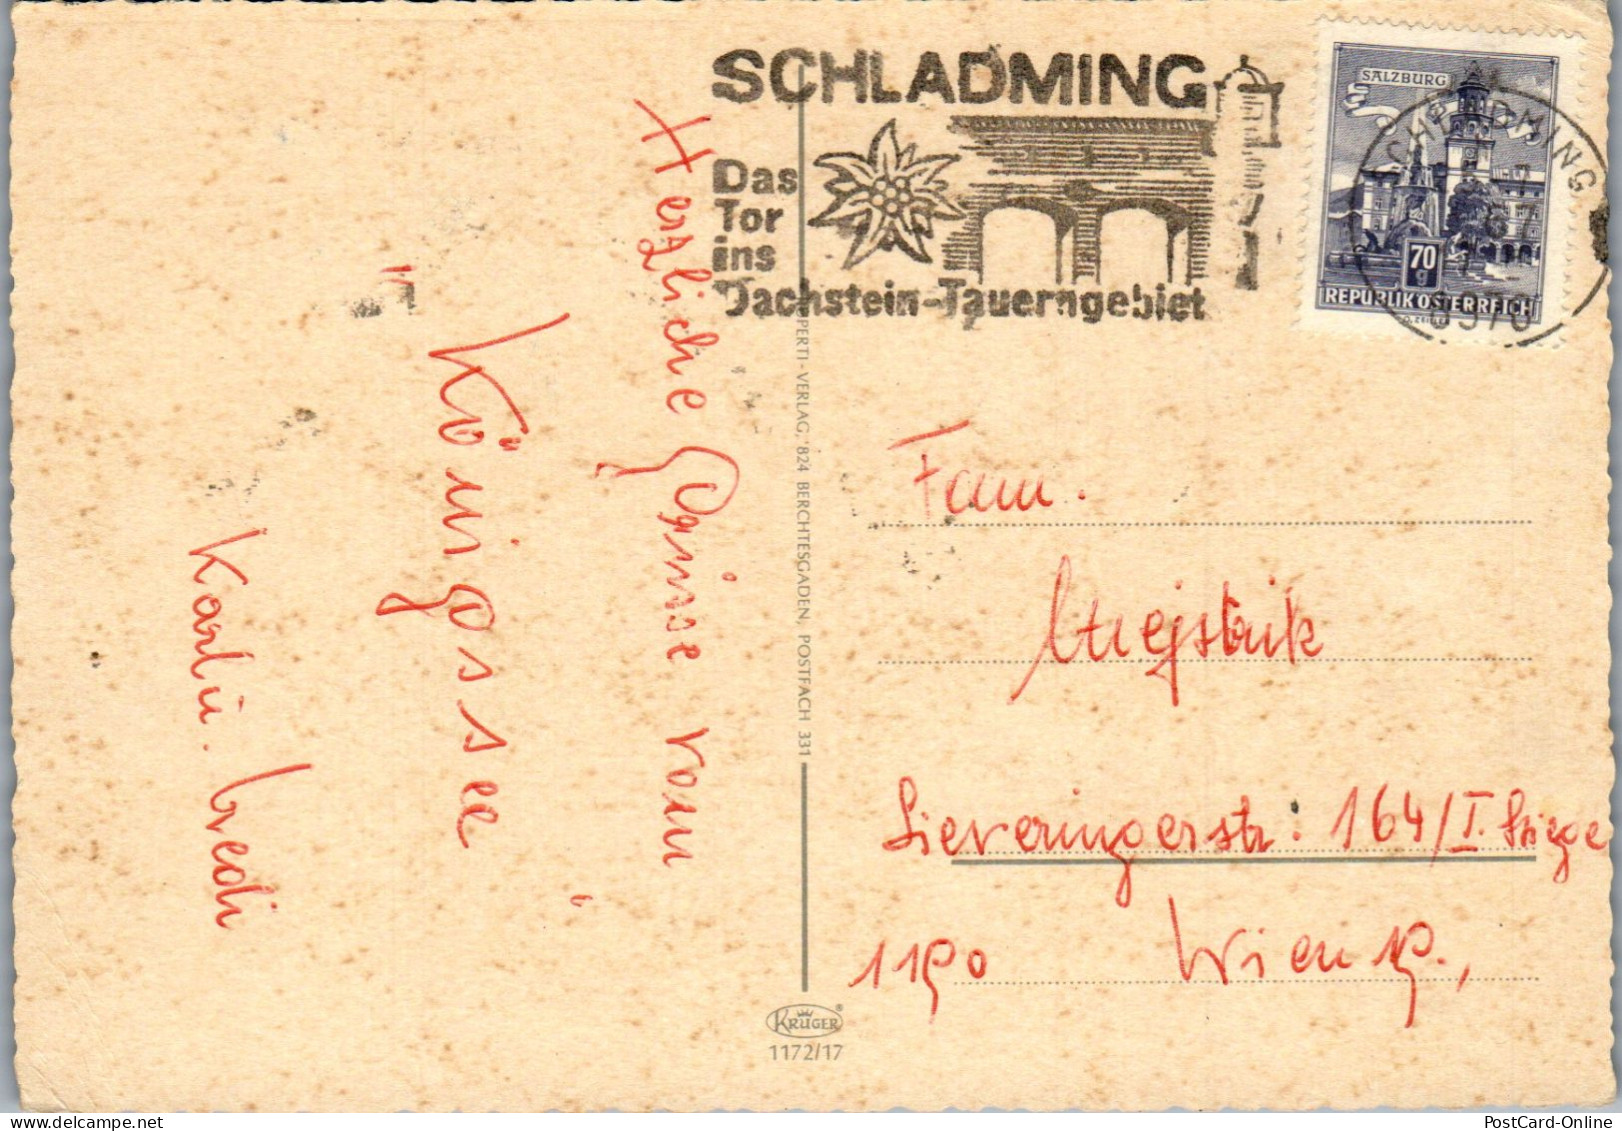 SCHLADMING
Das
Tor
ins
Dachstein-Tauerngebiet
SALZBURG
70
g
REPUBLIK ÖSTERREICH
SCHLADMING
8970
Herzliche Grüsse vom
Königssee
PERTI-VERLAG, 824 BERCHTESGADEN, POSTFACH 331
Fam.
Sieveringerstr: 164/I. Stiege
1190 Wien 19.,
KRÜGER
1172/17
PostCard-Online